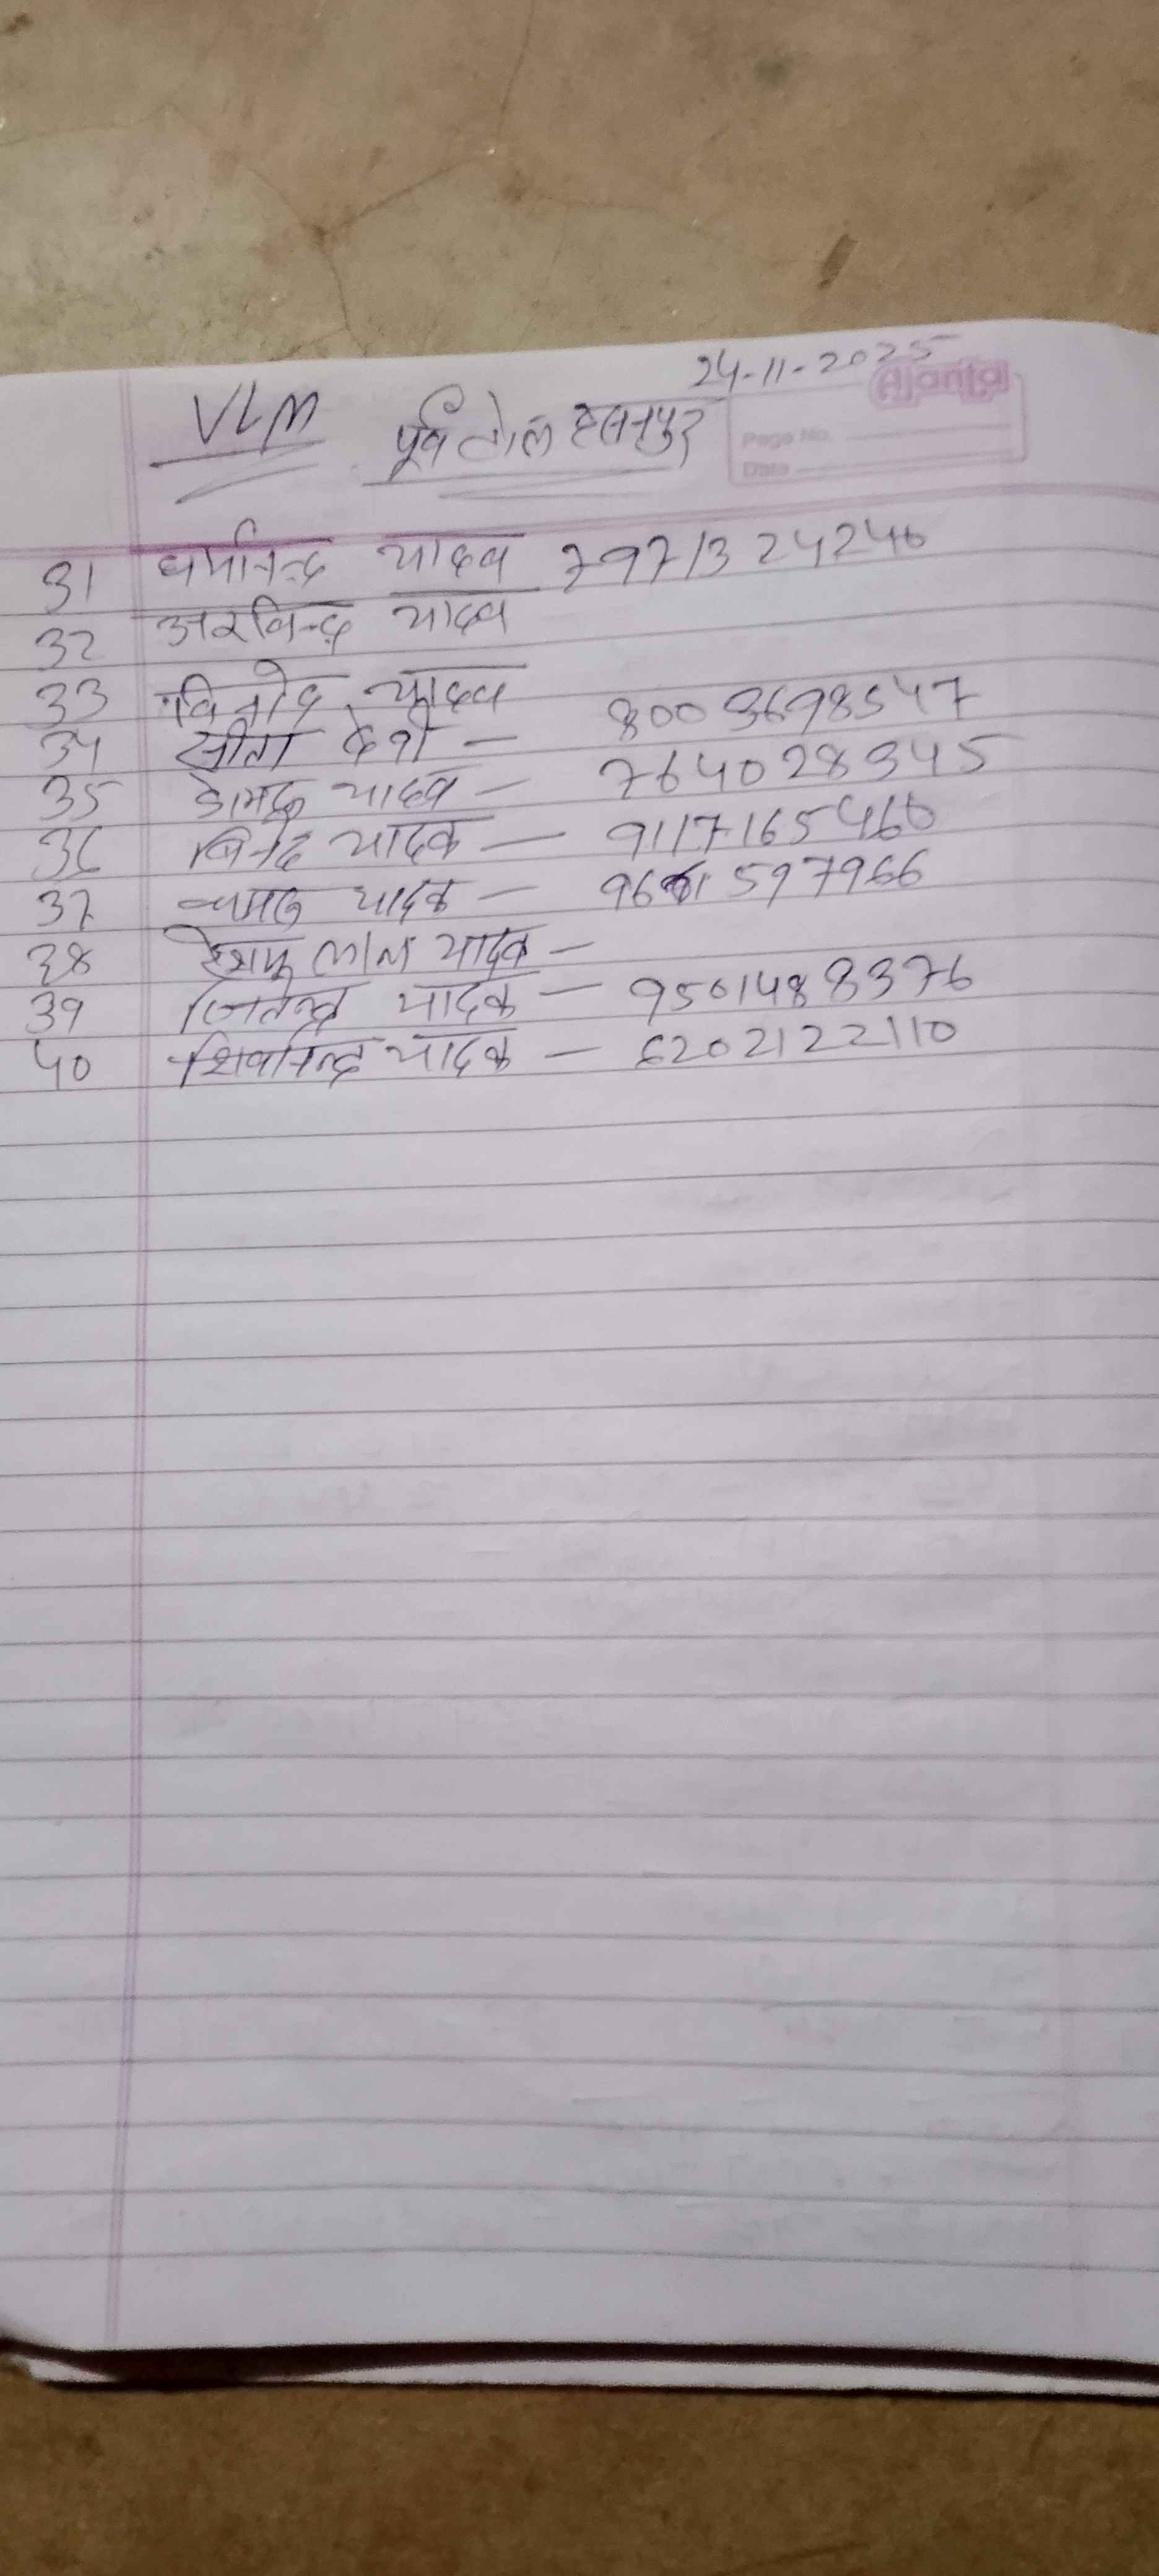 24-11-2025
Ajanta
VLM पूर्व टोल हसनपुर
Page No.
Date
31 धर्मानन्द यादव 7971324246
32 अरविन्द यादव
33 विनोद यादव
34 सीता देवी - 8003698547
35 यादव - 7640283345
36 यादव - 9117165460
37 यादव - 9661597966
38 लाल यादव -
39 जितेन्द्र यादव - 9501488376
40 शिवानन्द यादव - 6202122110